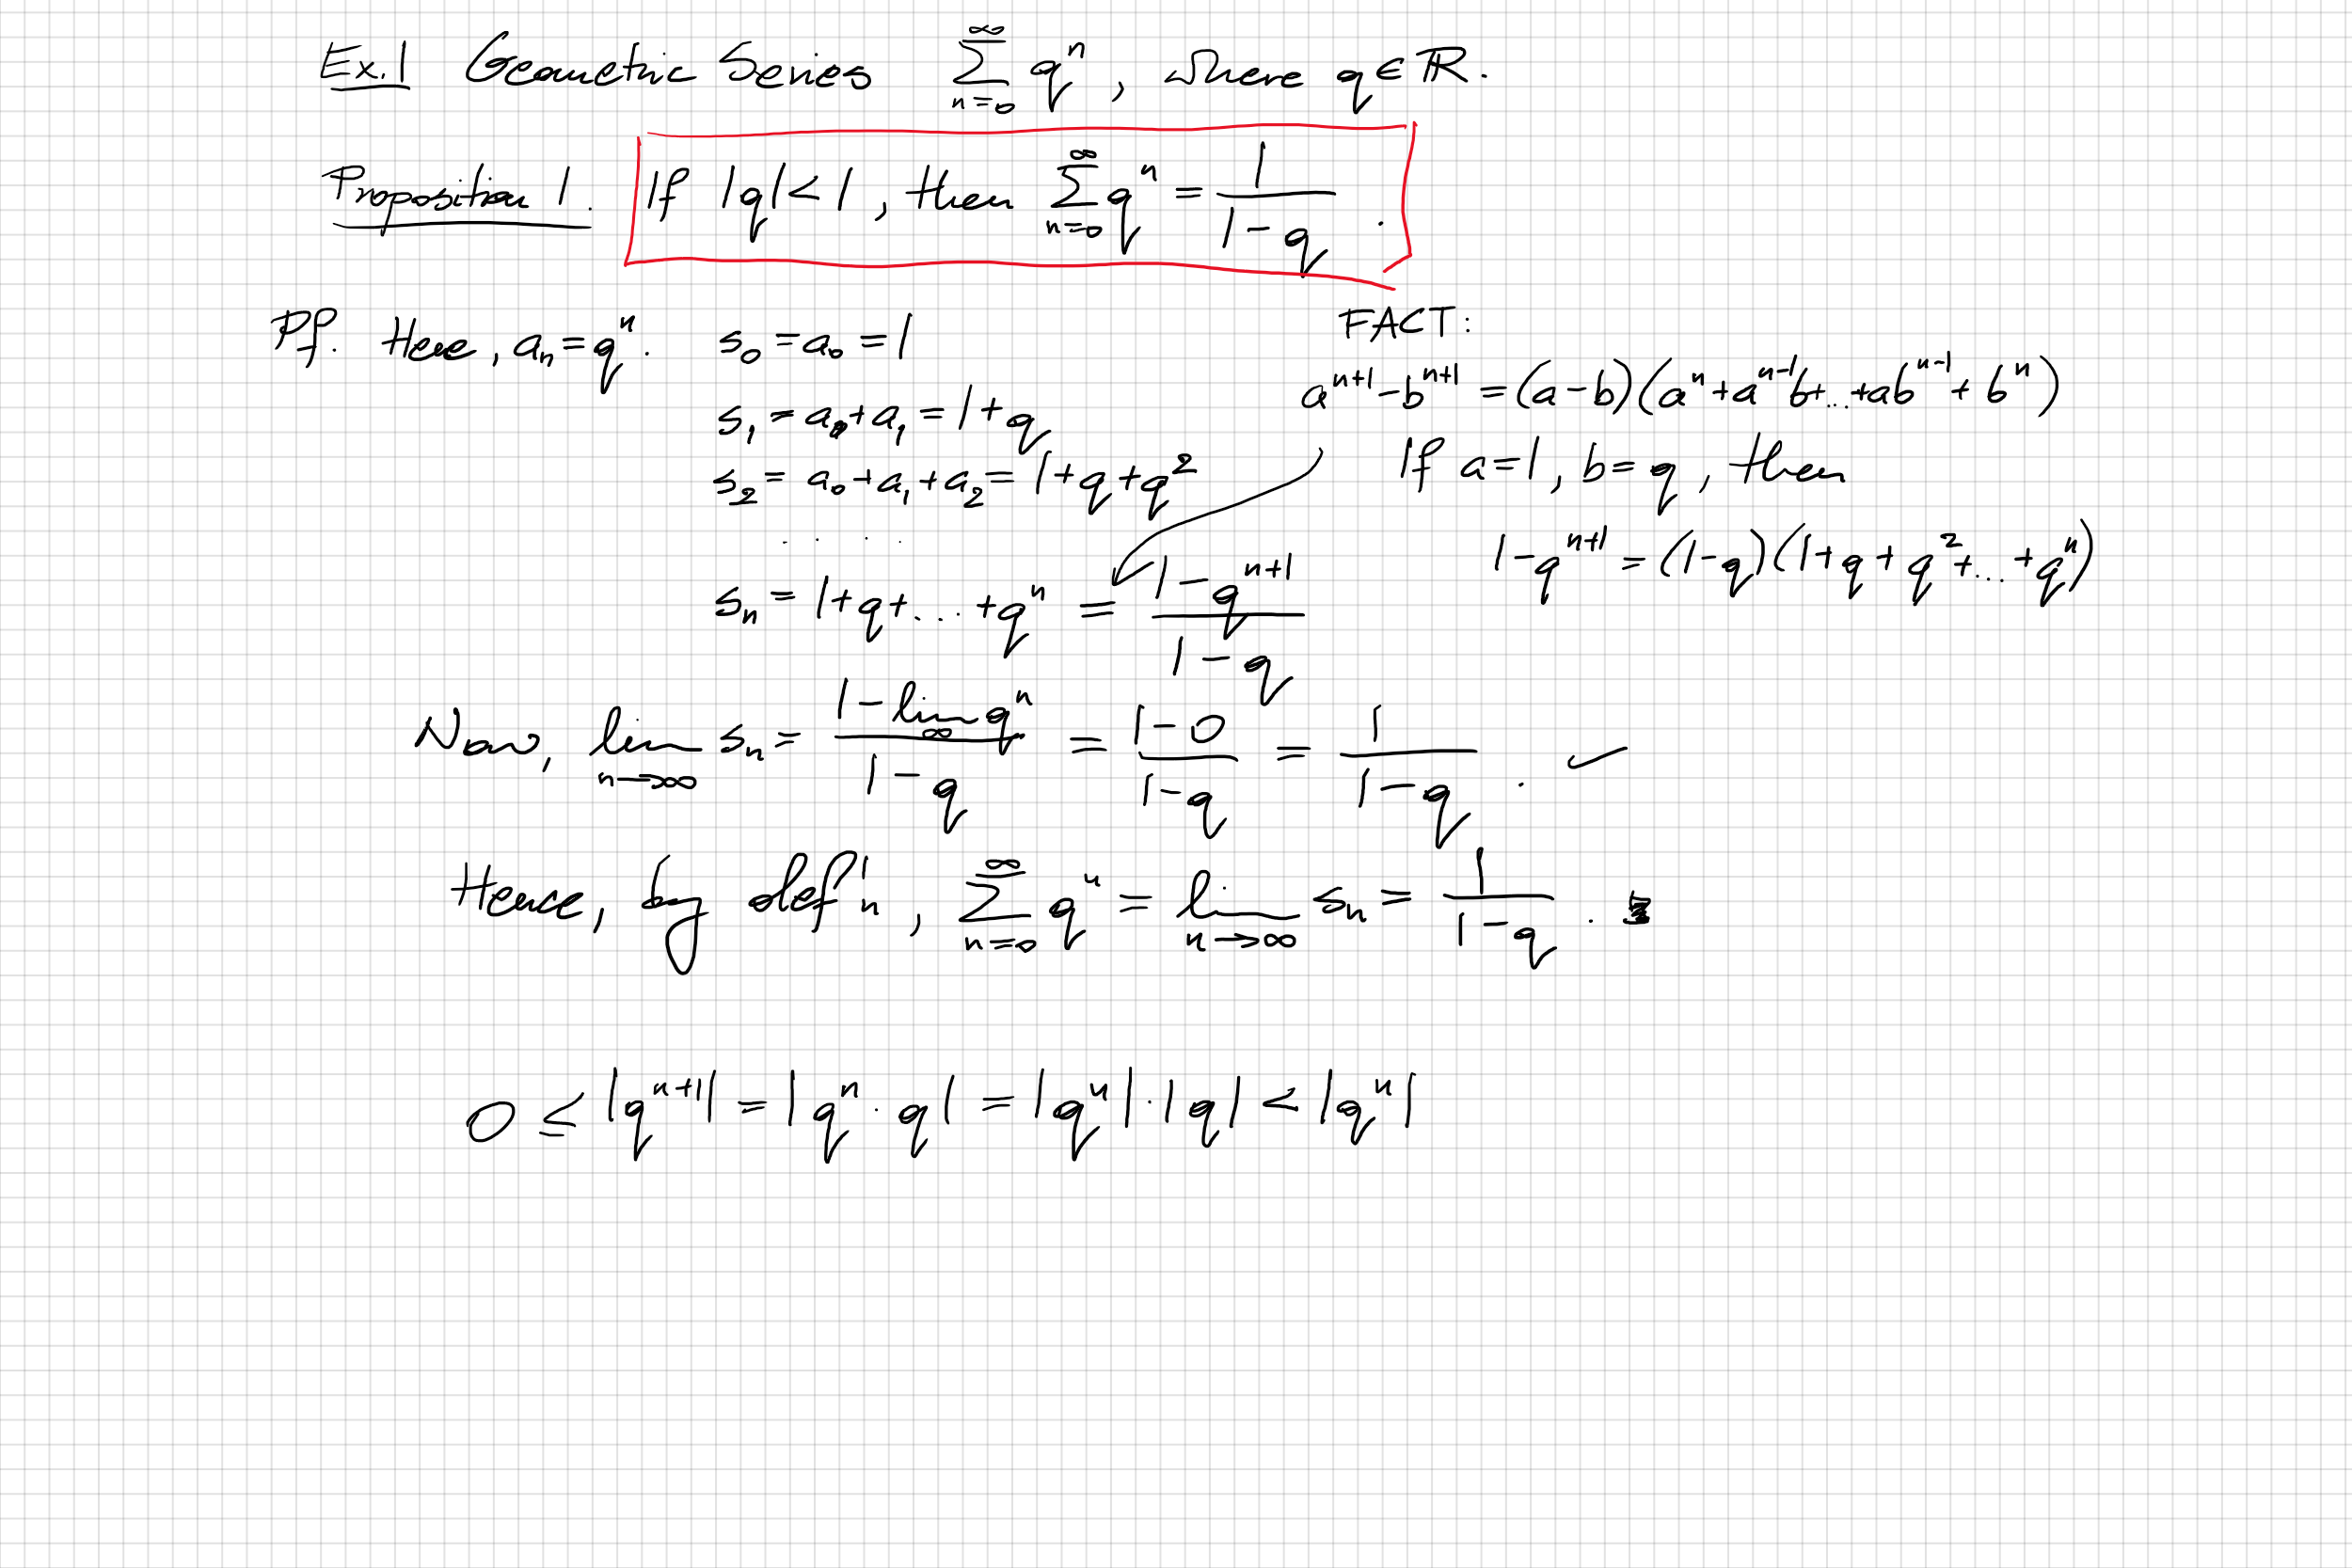 Ex.1 Geometric Series $\sum_{n=0}^{\infty} q^n$, where $q \in \mathbb{R}$.
Proposition 1. If $|q| < 1$, then $\sum_{n=0}^{\infty} q^n = \frac{1}{1-q}$.
Pf. Here, $a_n = q^n$. $s_0 = a_0 = 1$
$s_1 = a_0 + a_1 = 1 + q$
$s_2 = a_0 + a_1 + a_2 = 1 + q + q^2$
. . . .
$s_n = 1 + q + \ldots + q^n = \frac{1 - q^{n+1}}{1-q}$
FACT:
$a^{n+1} - b^{n+1} = (a-b)(a^n + a^{n-1}b + \ldots + ab^{n-1} + b^n)$
If $a=1$, $b=q$, then
$1 - q^{n+1} = (1-q)(1 + q + q^2 + \ldots + q^n)$
Now, $\lim_{n \to \infty} s_n = \frac{1 - \lim_{\infty} q^n}{1-q} = \frac{1-0}{1-q} = \frac{1}{1-q}$. ✓
Hence, by def'n, $\sum_{n=0}^{\infty} q^n = \lim_{n \to \infty} s_n = \frac{1}{1-q}$.
$0 \leq |q^{n+1}| = |q^n \cdot q| = |q^n| \cdot |q| < |q^n|$